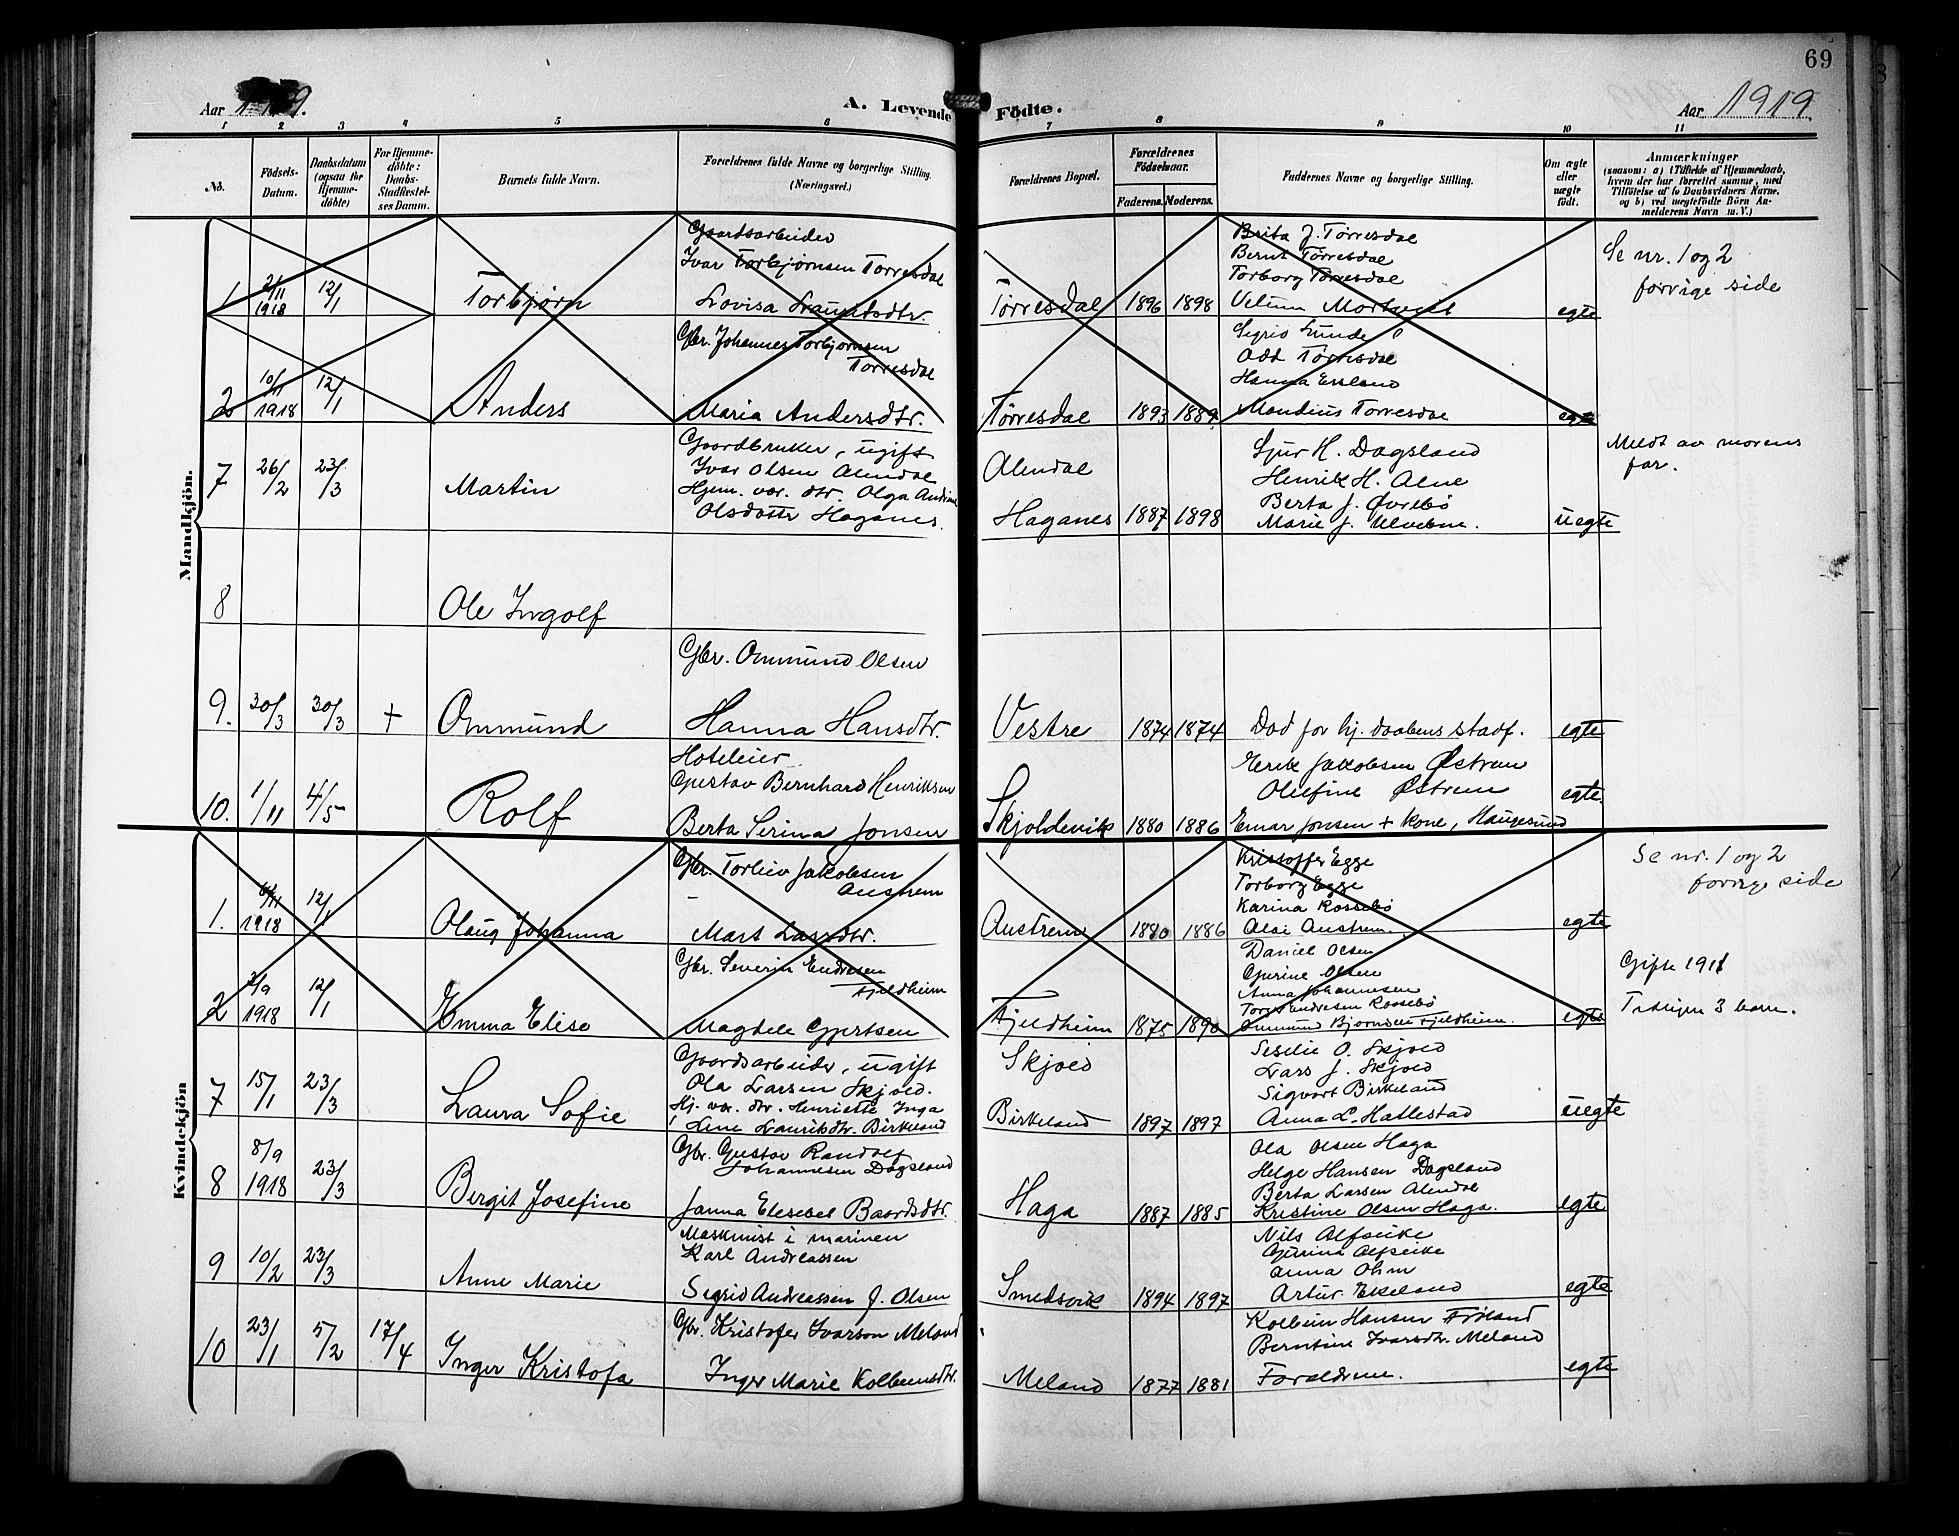 69
Aar 1919.
A. Levende Födte.
Aar 1919.
1 2 3 4 5 6 7 8 9 10 11
No.
Födsels-Datum.
Daabsdatum (ogsaa for Hjemme-döbte)
For Hjemme-döbte: Daabs-Stadfæstel-ses Datum.
Barnets fulde Navn.
Forældrenes fulde Navne og borgerlige Stilling. (Næringsvei.)
Forældrenes Bopæl.
Forældrenes Födselsaar.
Faderens. Moderens.
Faddernes Navne og borgerlige Stilling.
Om ægte eller uægte født.
Anmærkninger
(saasom: a) i Tilfælde af Hjemmedaab,
hvem der har forrettet samme, med
Tilföielse af to Daabsvidners Navne,
og b) ved uegtefödte Börn An-
melderens Navn m. V.)
Mandkjön.
Gaardsarbeider
Ivar Torbjørnsen Torresdal
1 2/11 1918 12/1 Torbjørn Lovisa
Tørresdal 1896 1898
Brita J. Tørresdal
Bernt Tørresdal
Torborg Tørresdal
egte
Se nr. 1 og 2
forrige side
Gbr. Johannes Torbjørnsen
Torresdal
2 10/11 1918 12/1 Anders Maria Andersdtr.
Tørresdal 1893 1889
Sigrid Lunde
Odd Tørresdal
Hanna
Mandius Torresdal
egte
Gaardbruker, ugift
Ivar Olsen Alendal
Hjem. vær. dtr. Olga Andine
Olsdatter Haganes.
7 26/2 23/3 Martin
Alendal
Haganes 1887 1898
Sjur H. Dagsland
Henrik H. Alne
Berta J. Øvrebø
Marie J.
uegte
Meldt av morens
far.
8 Ole Ingolf
Gbr. Ommund Olsen
9. 30/3 30/3 + Ommund Hanna Hansdtr.
Vestre 1874 1874 Død før hj. daabens stadf. egte
Hoteleier
Gustav Bernhard Henriksen
10. 1/11 4/5 Rolf Berta Serina Jonsen
Skjoldevik 1880 1886
Henrik Jakobsen Østrem
Olufine Østrem
Einar Jonsen + kone, Haugesund
egte.
Kvindekjön
Gbr. Torleiv Jakobsen
Austrem
1. 1918 12/1 Olaug Johanna Mart Larsdtr.
Austrem 1880 1886
Kristoffer Egge
Torborg Egge
Karina Rossebø
Austrem.
egte
Se nr. 1 og 2
forrige side
Gbr. Severin Endresen
Fjeldheim
2 7/9 1918 12/1 Emma Elise Magdele Gjertsen
Fjeldheim 1875 1890
Daniel Olsen
Gurine Olsen
Anna Johannesen
Endresen Rossebø
Ommund Bjørnsen Fjeldheim.
egte
Gifte 1918
Tidligere 3 barn.
Gaardsarbeider, ugift
Ola Larsen Skjold.
Hj. vær. dtr. Henriette Inga
Line Lauritsdtr. Birkeland
7 15/1 23/3 Laura Sofie
Skjold
Birkeland 1897 1897
Seselie O. Skjold
Lars J. Skjold
Sigvart Birkeland
Anna L. Hatlestad
uegte
Gbr. Gustav Randolf
Johannesen Dagsland
8 8/9 1918 23/3 Bergit Josefine Janna Elesebet Baardsdtr.
Haga 1887 1885
Ola Olsen Haga
Helge Hansen Dagsland
Berta Larsen Alendal
Kristine Olsen Haga.
egte
Maskinist i marinen
Karl Andreassen
9 10/2 23/3 Anne Marie Sigrid Andreassen f. Olsen
Smedsvik 1894 1897
Nils Alfseike
Gurina Alfseike
Anna Ohm
Artur Ekeland
egte
Gbr. Kristofer Ivarson Meland
10 23/1 5/2 17/4 Inger Kristofa Inger Marie Kolbeinsdtr.
Meland 1877 1881
Kolbein Hansen Frøland
Berntine Ivarsdtr. Meland
Forældrene.
egte